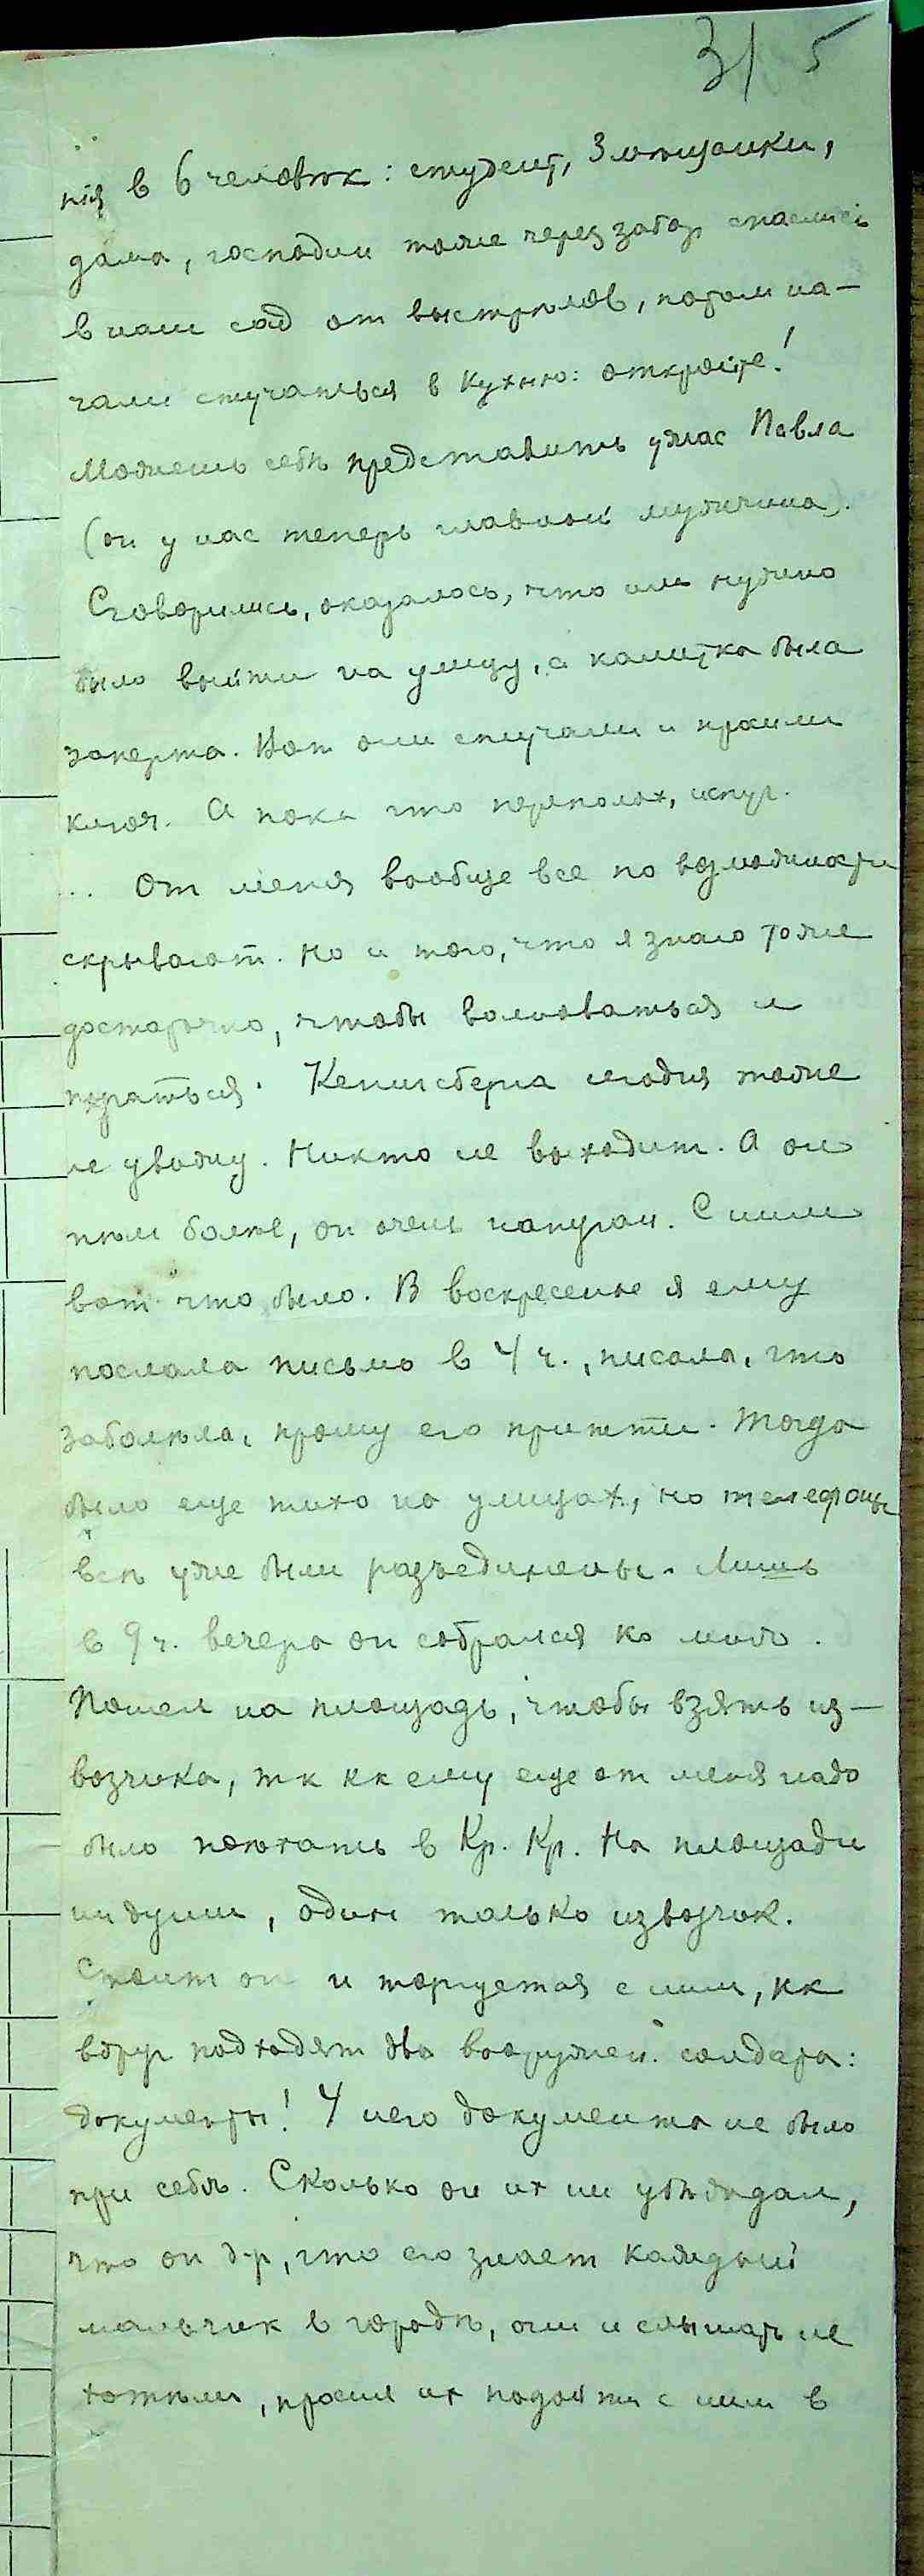 3/ 5
нiя в 6 человѣк: студент, 3 мѣщанки,
дама, господин тоже через забор спаслись
в наш сад от выстрѣлов, потом на-
чали стучаться в кухню: откройте!
Можешь себѣ представить ужас Павла
(он у нас теперь главный мужчина).
Сговорились, оказалось, что им нужно
было выйти на улицу, а калитка была
заперта. Вот они стучали и просили
ключ. А пока что переполох, испуг.
... От меня вообще все по возможности
скрывают. Но и того, что я знаю тоже
достаточно, чтобы волноваться и
пугаться. Кенигсберга сегодня тоже
не увижу. Никто не выходит. А он
тѣм болѣе, он очень напуган. С ним
вот что было. В воскресенье я ему
послала письмо в 4 ч., писала, что
заболѣла, прошу его притти. Тогда
было еще тихо на улицах, но телефоны
всѣ уже были разъединены. Лишь
в 9 ч. вечера он собрался ко мнѣ.
Пошел на площадь, чтобы взять из-
возчика, тк кк ему еще от меня надо
было поѣхать в Кр. Кр. На площади
ни души, один только извозчик.
Стоит он и торгуется с ним, кк
вдруг подходят два вооружен. солдата:
документы! У него документа не было
при себѣ. Сколько он их ни убѣждал,
что он д-р, что его знает каждый
мальчик в городѣ, они и слышать не
хотѣли, просил их подойти с ним в